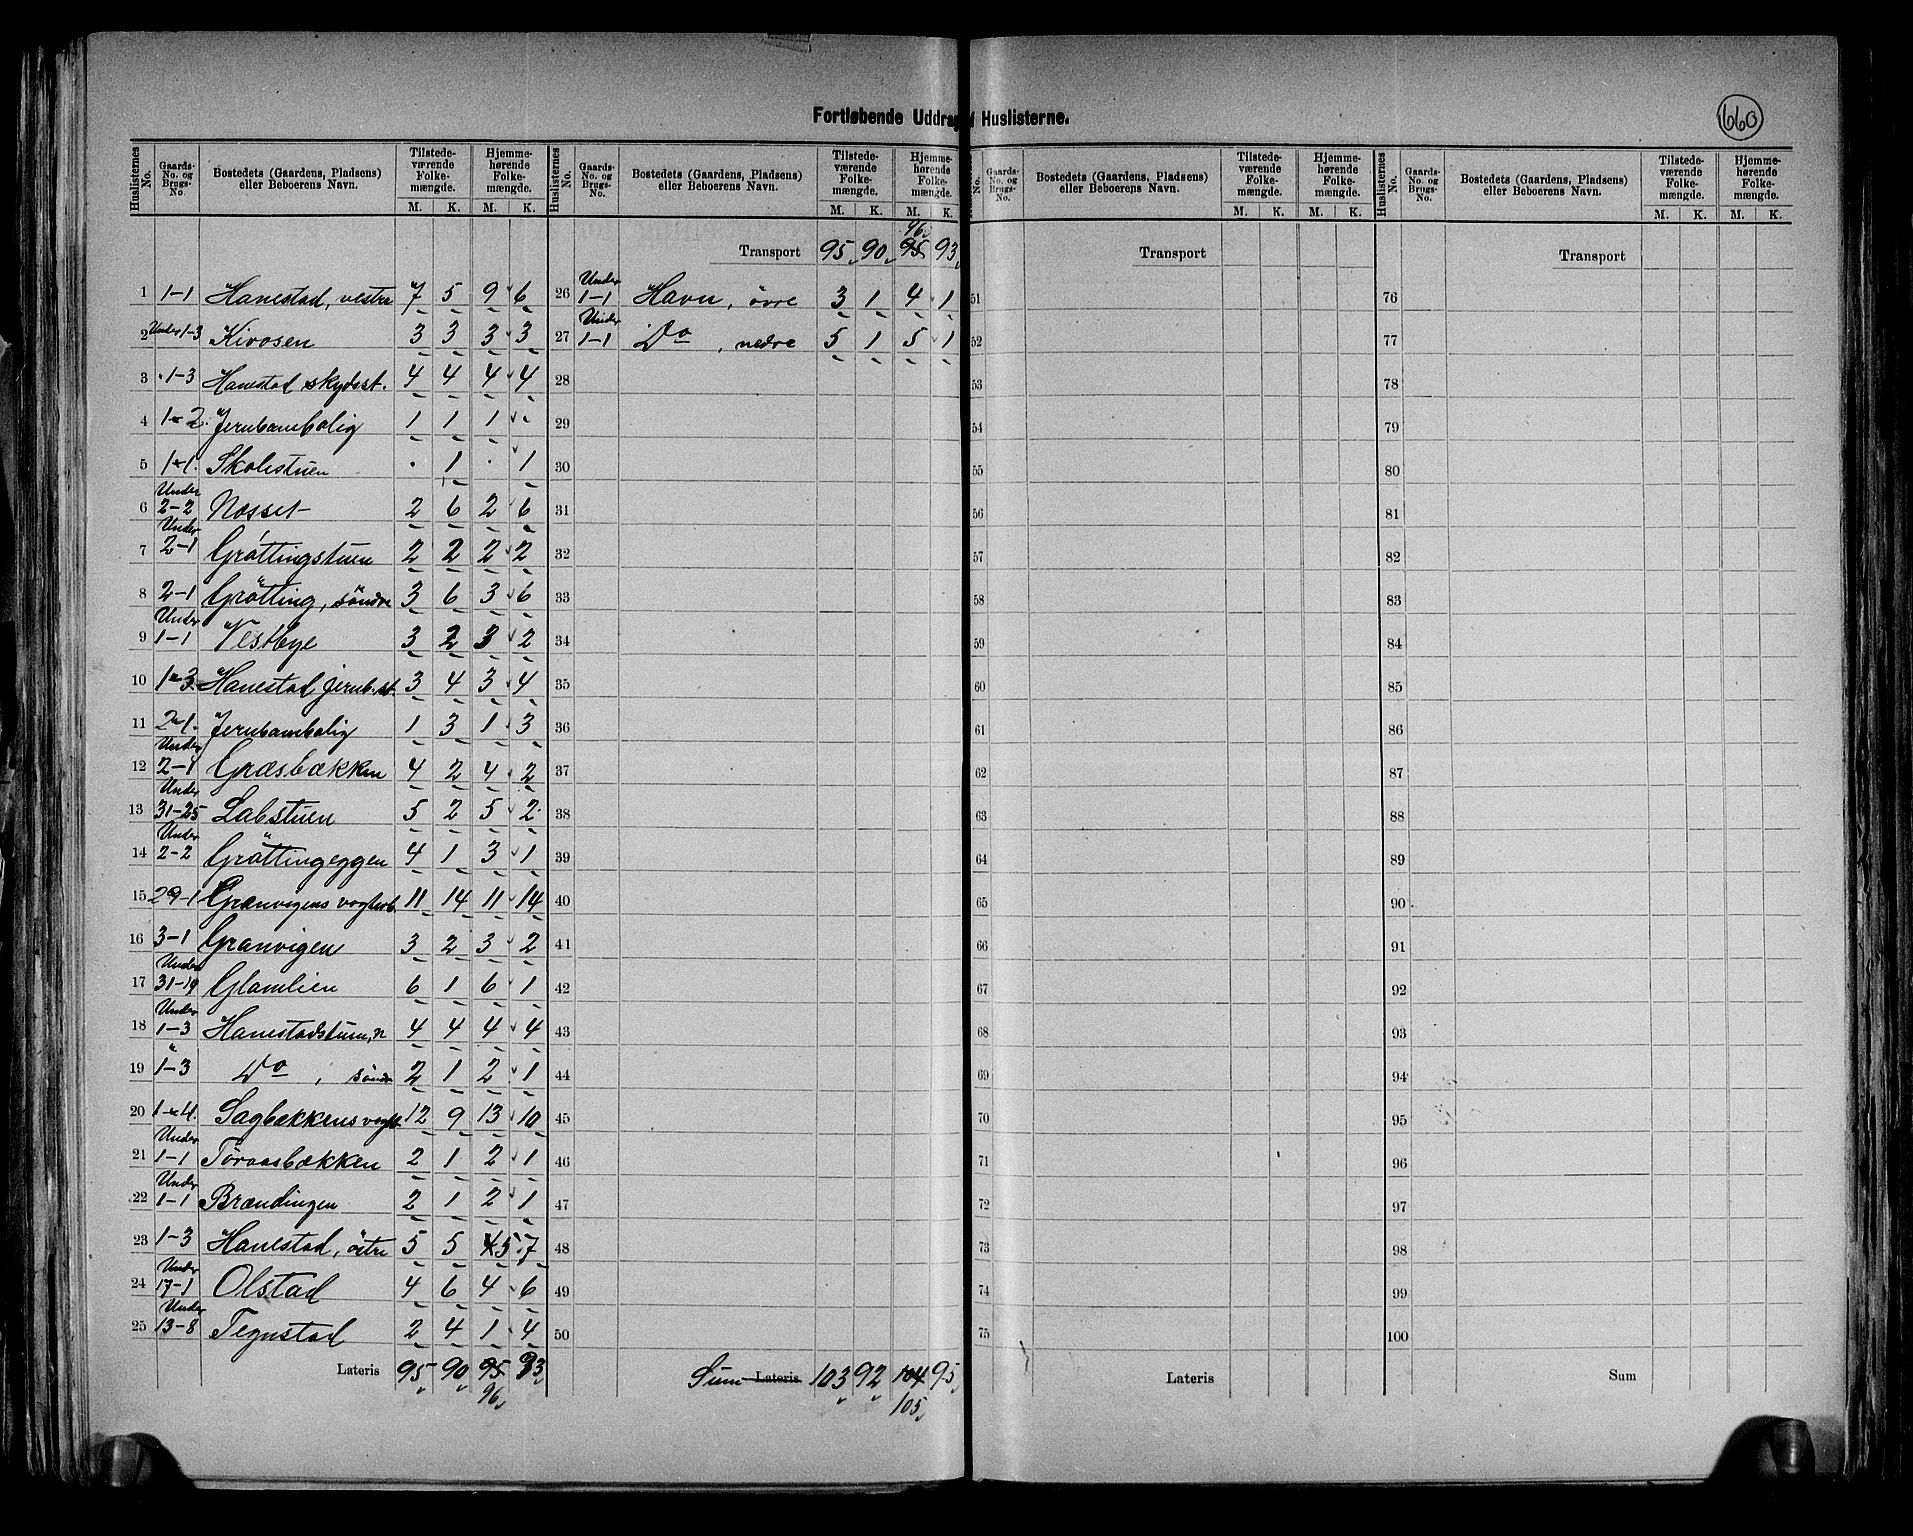 Fortløbende Uddrag af Huslisterne.
660
Huslisternes No. | Gaards-No. og Brugs-No. | Bostedets (Gaardens, Pladsens) eller Beboerens Navn. | Tilstedeværende Folkemængde. M. K. | Hjemmehørende Folkemængde. M. K.
1 | 1-1 | Hanestad, vestre | 7 | 5 | 9 | 6
2 | Under 1-3 | Kivosen | 3 | 3 | 3 | 3
3 | 1-3 | Hanestad skydsst. | 4 | 4 | 4 | 4
4 | 1-2. | Jernbanebolig | 1 | 1 | 1 | "
5 | 1-1. | Skolestuen | . | 1 | . | 1
6 | Under 2-2 | Nosset | 2 | 6 | 2 | 6
7 | Under 2-1 | Gröttingstuen | 2 | 2 | 2 | 2
8 | 2-1 | Grötting, söndre | 3 | 6 | 3 | 6
9 | Under 1-1 | Vestbye | 3 | 2 | 3 | 2
10 | 1-3 | Hanestad jernb.st. | 3 | 4 | 3 | 4
11 | 2-1. | Jernbanebolig | 1 | 3 | 1 | 3
12 | Under 2-1 | Græsbækken | 4 | 2 | 4 | 2
13 | Under 31-25 | Labstuen | 5 | 2 | 5 | 2
14 | Under 2-2 | Gröttingeggen | 4 | 1 | 3 | 1
15 | 29-1 | Granvigens vogterb. | 11 | 14 | 11 | 14
16 | 3-1 | Granvigen | 3 | 2 | 3 | 2
17 | Under 31-19 | Glamlien | 6 | 1 | 6 | 1
18 | Under 1-3 | Hanestadstuen, n | 4 | 4 | 4 | 4
19 | " 1-3 | Do , söndre | 2 | 1 | 2 | 1
20 | 1-4. | Sagbækkens vogt. | 12 | 9 | 13 | 10
21 | Under 1-1 | Toraasbækken | 2 | 1 | 2 | 1
22 | Under 1-1 | Brændingen | 2 | 1 | 2 | 1
23 | 1-3 | Hanestad, östre | 5 | 5 | 4 5 | 7
24 | Under 17-1 | Olstad | 4 | 6 | 4 | 6
25 | Under 13-8 | Tegnstad | 2 | 4 | 1 | 4
Lateris | 95 | 90 | 95 96 | 93
Huslisternes No. | Gaards-No. og Brugs-No. | Bostedets (Gaardens, Pladsens) eller Beboerens Navn. | Tilstedeværende Folkemængde. M. K. | Hjemmehørende Folkemængde. M. K.
Transport | 95 | 90 | 96 95 | 93
26 | Under 1-1 | Havn, övre | 3 | 1 | 4 | 1
27 | Under 1-1 | Do , nedre | 5 | 1 | 5 | 1
28
29
30
31
32
33
34
35
36
37
38
39
40
41
42
43
44
45
46
47
48
49
50
Sum Lateris | 103 | 92 | 104 105 | 95
No. | Gaards-No. og Brugs-No. | Bostedets (Gaardens, Pladsens) eller Beboerens Navn. | Tilstedeværende Folkemængde. M. K. | Hjemmehørende Folkemængde. M. K.
Transport
51
52
53
54
55
56
57
58
59
60
61
62
63
64
65
66
67
68
69
70
71
72
73
74
75
Lateris
Huslisternes No. | Gaards-No. og Brugs-No. | Bostedets (Gaardens, Pladsens) eller Beboerens Navn. | Tilstedeværende Folkemængde. M. K. | Hjemmehørende Folkemængde. M. K.
Transport
76
77
78
79
80
81
82
83
84
85
86
87
88
89
90
91
92
93
94
95
96
97
98
99
100
Sum